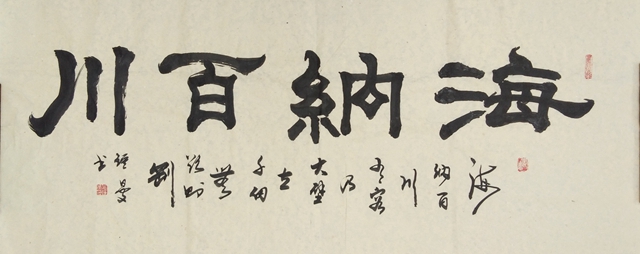 海納百川
海
納百
川
有容
乃
大壁
立
千仞
無
欲則
剛
曼
书